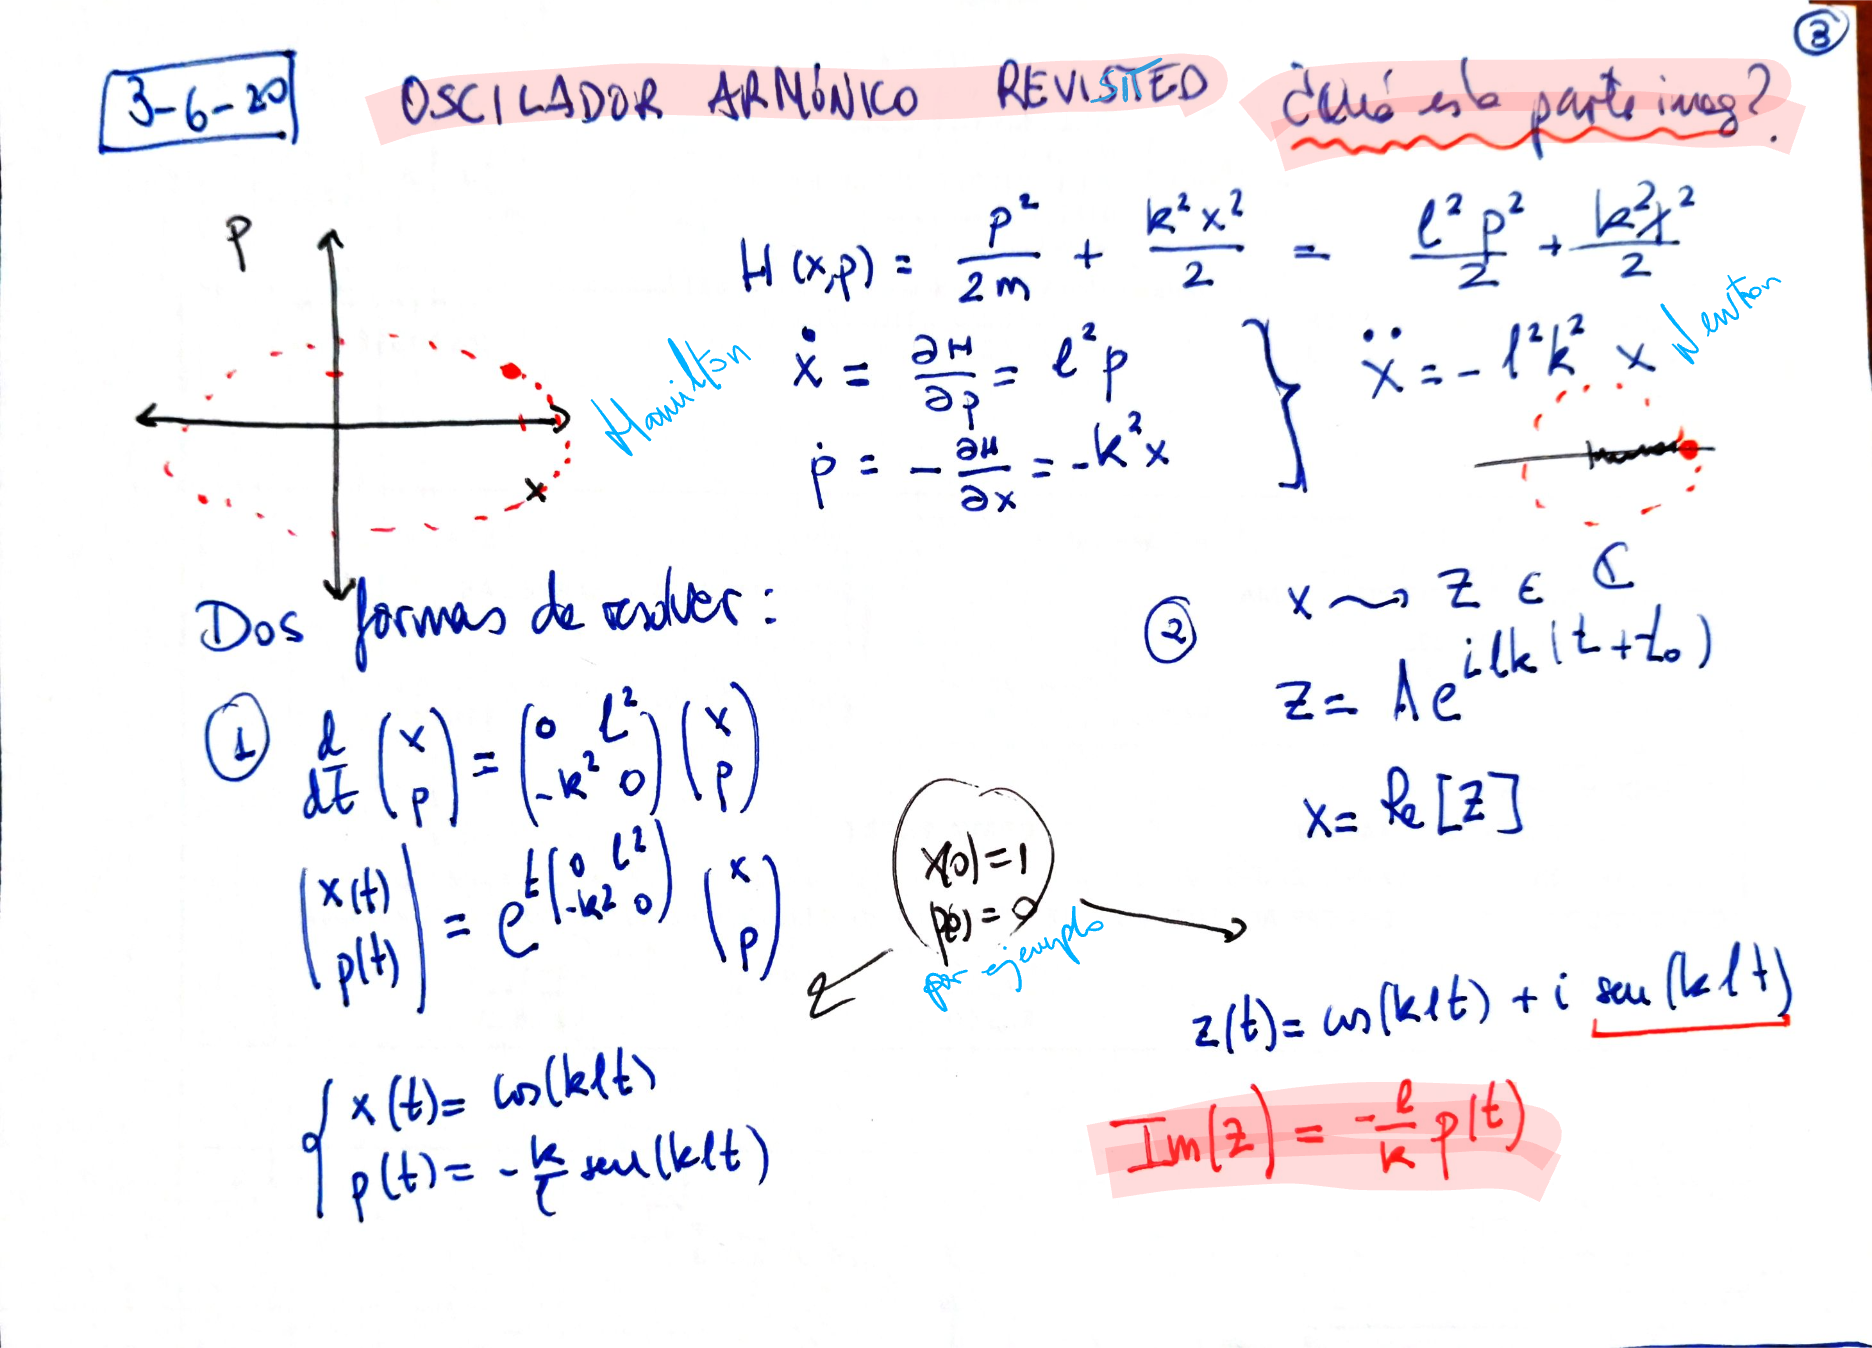 ③
3-6-20
OSCILADOR ARMÓNICO REVISITED ¿Qué es la parte imag?
p
H(x,p) = p²/2m + k²x²/2 = l²p²/2 + k²x²/2
Hamilton
ẋ = ∂H/∂p = l²p
ṗ = -∂H/∂x = -k²x
ẍ = -l²k² x
Newton
x
Dos formas de resolver:
① d/dt (x p) = (0 l² -k² 0) (x p)
(x(t) p(t)) = e^t(0 l² -k² 0) (x p)
② x ⇝ z ∈ ℂ
z = A e^ilk(t+t₀)
x = Re[z]
x(0)=1
p(0)=0
por ejemplo
{ x(t) = cos(klt)
p(t) = -k/l sen(klt)
z(t) = cos(klt) + i sen(klt)
Im(z) = -l/k p(t)